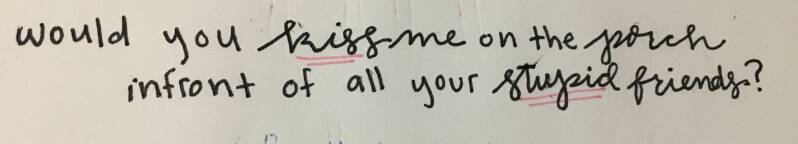 would you kiss me on the porch
infront of all your stupid friends?